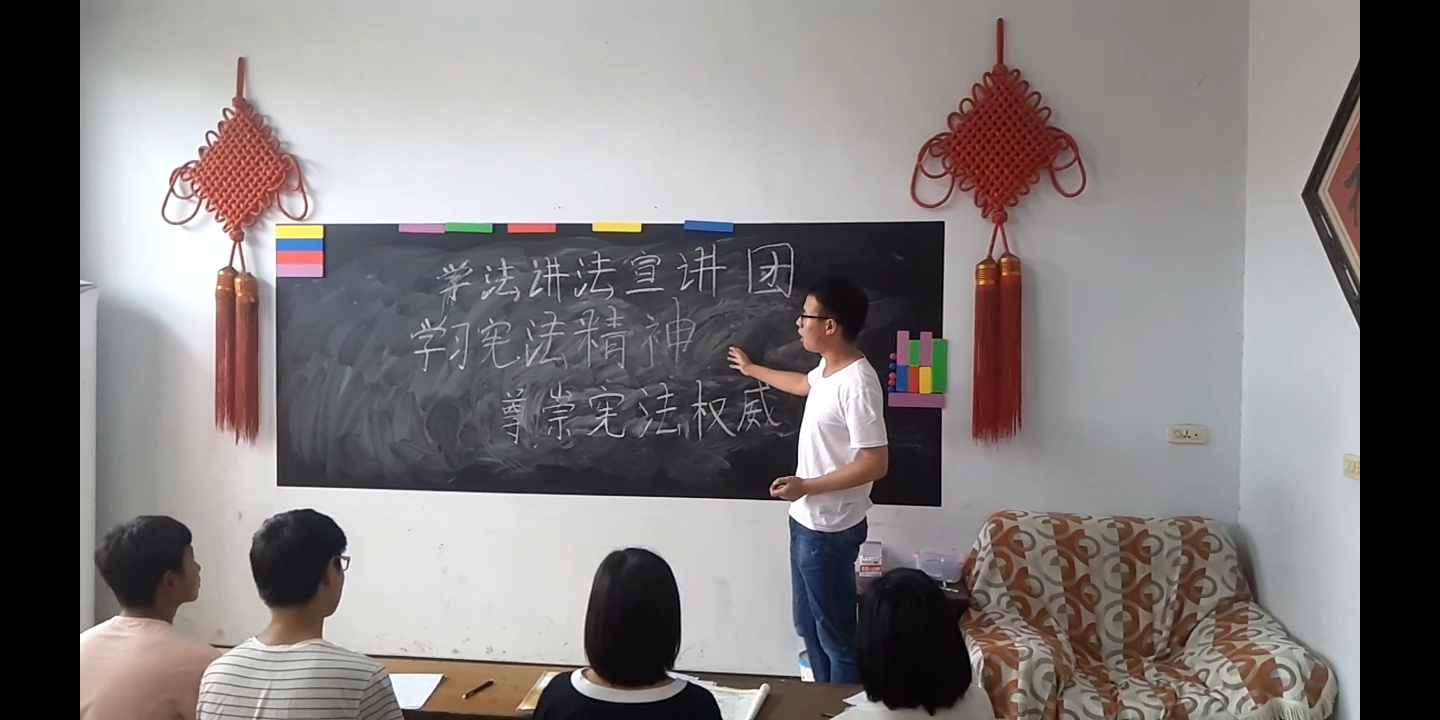 学法讲法宣讲团
学习宪法精神
尊崇宪法权威